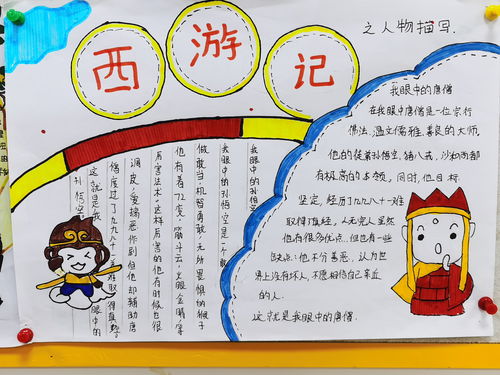 西游记
之人物描写.
我眼中的孙悟空
我眼中的孙悟空是一个敢
做敢当机智勇敢,无所畏惧的猴子
他有着72变,筋斗云,火眼金睛等
厉害法术,这样厉害的他有时候也很
调皮,爱搞恶作剧但他却辅助唐
僧度过了九九八十一难取得真经
这就是我眼中的
孙悟空
我眼中的唐僧
在我眼中唐僧是一位崇行
佛法,温文儒雅,善良的大师,
他的徒弟孙悟空,猪八戒,沙和尚都
有极高的本领,同时,他目标
坚定,经历了九九八十一难
取得了真经,人无完人虽然
他有很多优点…但也有一些
缺点:他不分善恶,认为世
界上没有坏人,不愿相信自己亲近
的人.
这就是我眼中的唐僧.